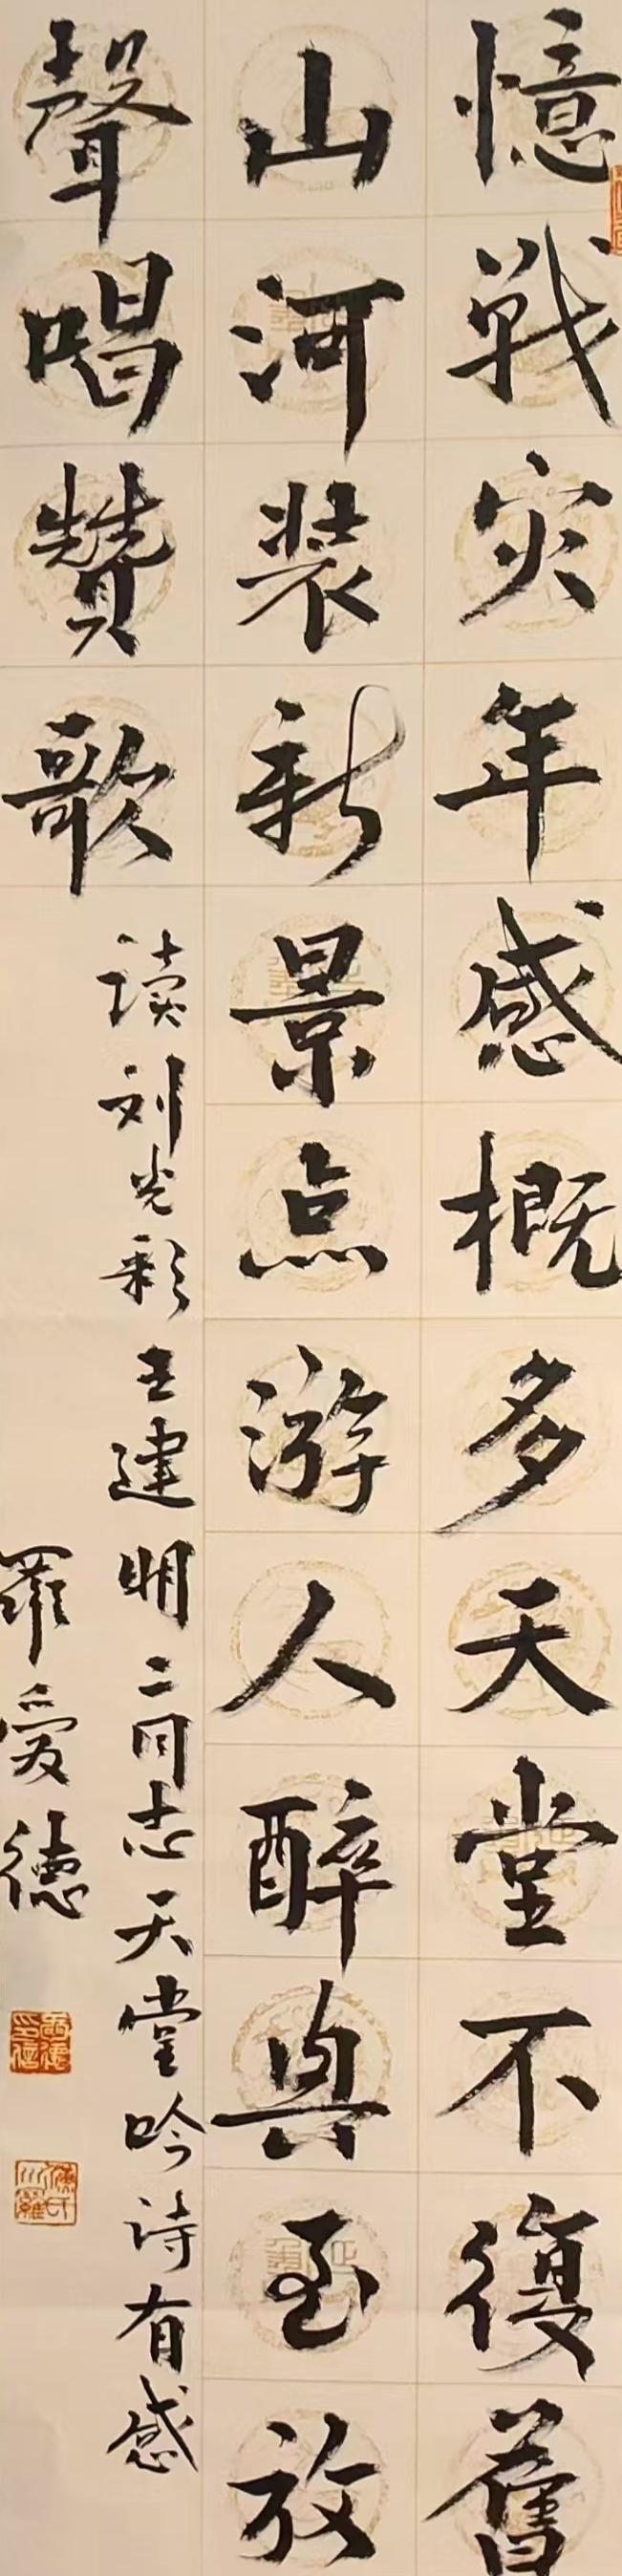 憶戦灾年感概多天堂不復舊
山河装新景点游人醉興至放
聲唱贊歌
读刘光彩王建明二同志天堂吟诗有感
羅爱德